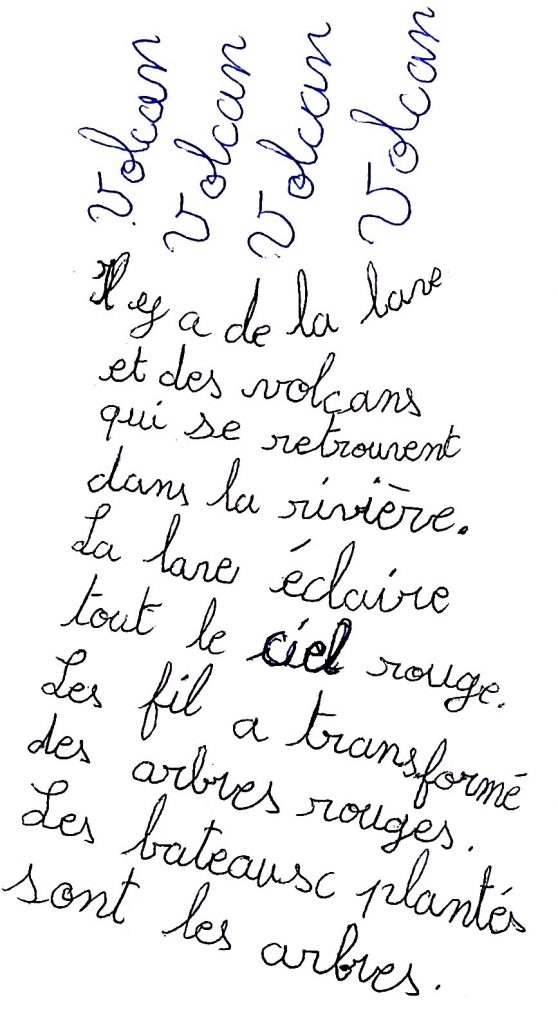 Volcan
Volcan
Volcan
Volcan
Il y a de la lave
et des volcans
qui se retrouvent
dans la rivière.
La lave éclaire
tout le ciel rouge.
Les fil a transformé
des arbres rouges.
Les bateaux plantés
sont les arbres.